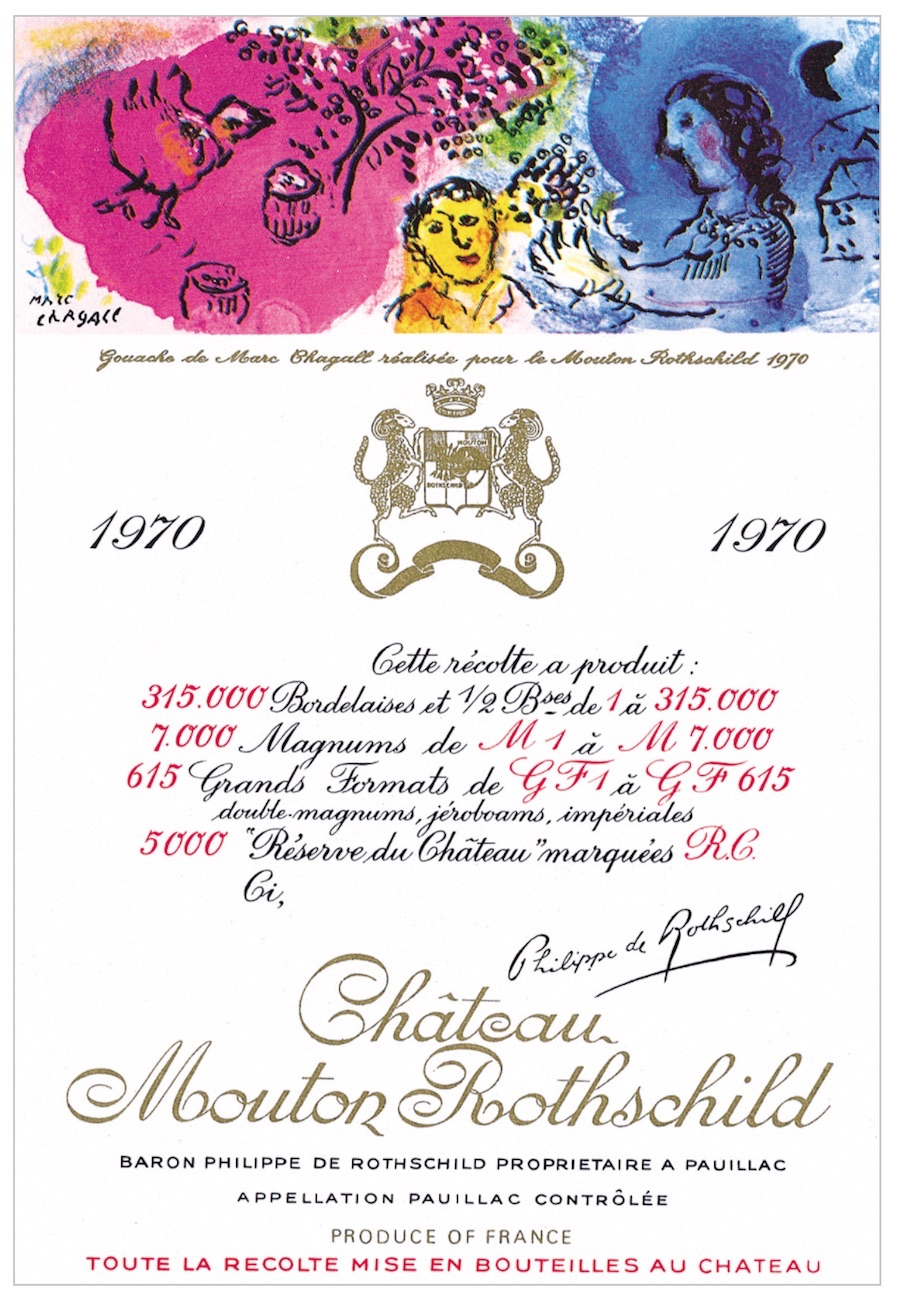 MARC
CHAGALL
Gouache de Marc Chagall réalisée pour le Mouton Rothschild 1970
MOUTON
ROTHSCHILD
1970 1970
Cette récolte a produit :
315.000 Bordelaises et 1/2 Bses de 1 à 315.000
7.000 Magnums de M 1 à M 7.000
615 Grands Formats de GF1 à GF 615
double-magnums, jéroboams, impériales
5000 "Réserve du Château" marquées R.C.
Ci,
Philippe de Rothschild
Château
Mouton Rothschild
BARON PHILIPPE DE ROTHSCHILD PROPRIETAIRE A PAUILLAC
APPELLATION PAUILLAC CONTRÔLÉE
PRODUCE OF FRANCE
TOUTE LA RECOLTE MISE EN BOUTEILLES AU CHATEAU